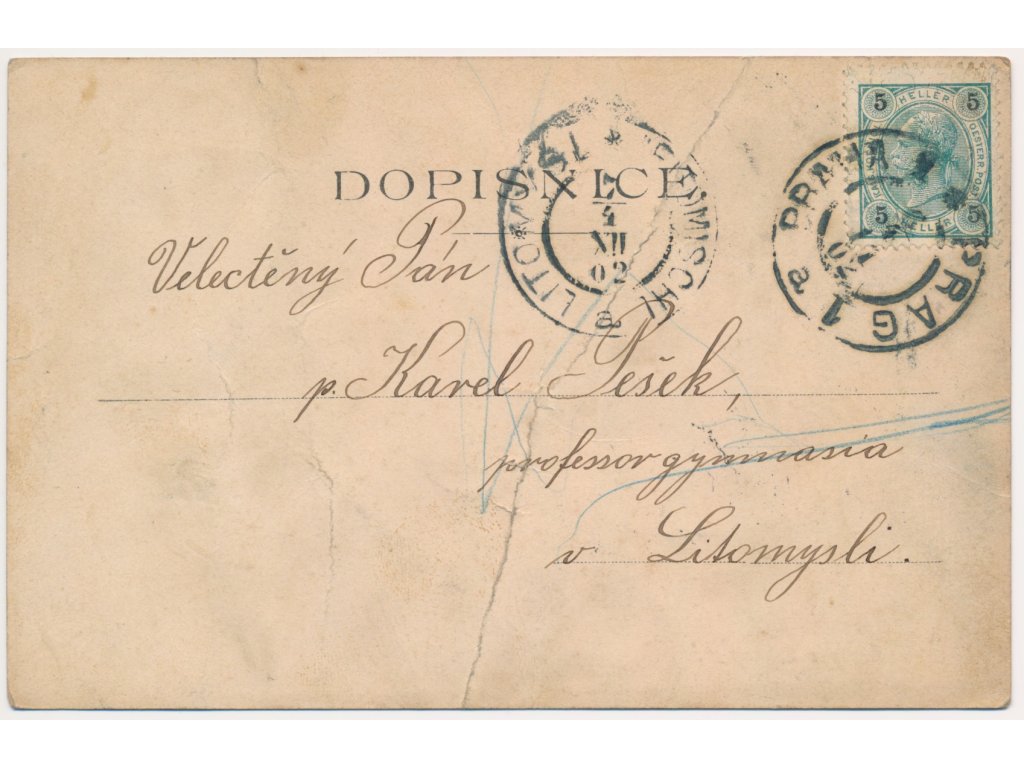 DOPISNICE
5 HELLER 5
OESTERR. POST
5 HELLER 5
PRAHA 1 PRAG 1 a
LITOMYŠL * LEITOMISCHL a
4
XII
02
Velectěný Pán
p. Karel Pešék,
professor gymnasia
v Litomysli.